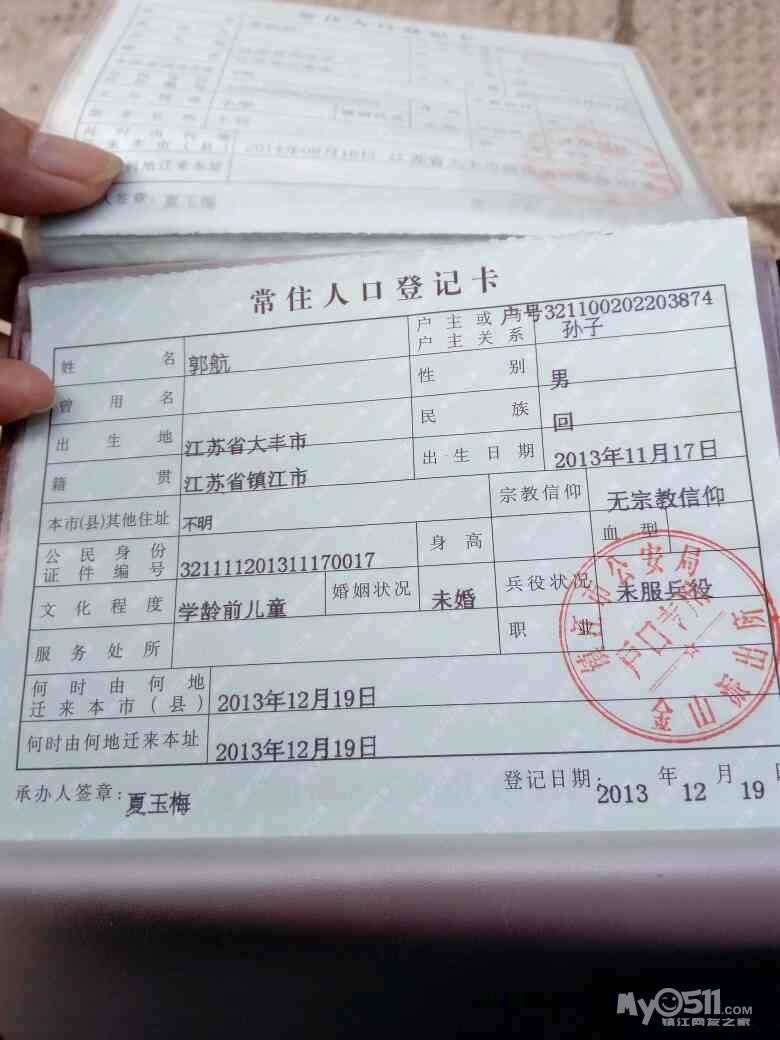 常住人口登记卡
人签章：夏玉梅
常住人口登记卡
户号321100202203874
姓名 郭航 户主或与户主关系 孙子
曾用名 性别 男
出生地 江苏省大丰市 民族 回
籍贯 江苏省镇江市 出生日期 2013年11月17日
本市(县)其他住址 不明 宗教信仰 无宗教信仰
公民身份证件编号 321111201311170017 身高 血型
文化程度 学龄前儿童 婚姻状况 未婚 兵役状况 未服兵役
服务处所 职业
何时由何地迁来本市(县) 2013年12月19日
何时由何地迁来本址 2013年12月19日
承办人签章：夏玉梅 登记日期：2013年12月19日
镇江市公安局
户口专用
金山派出所
My0511.COM
镇江网友之家